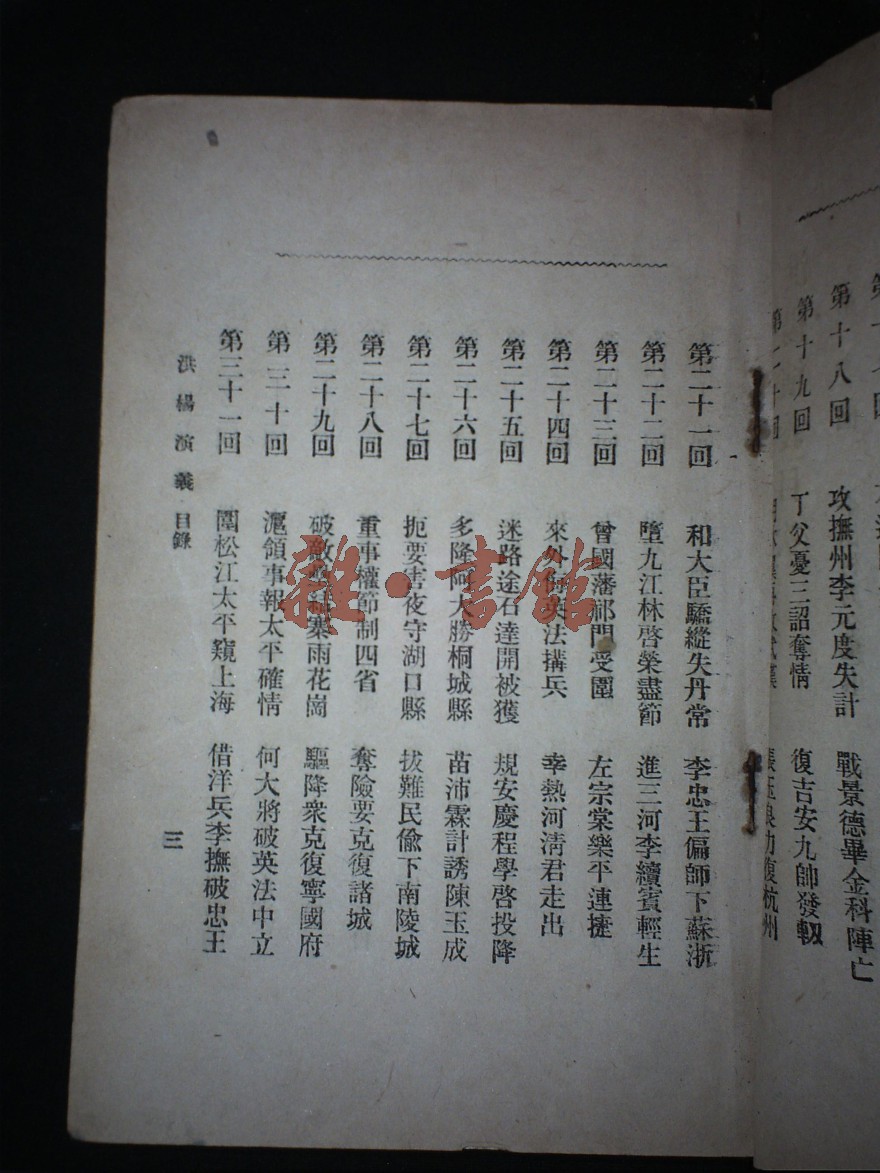 第十八回 攻撫州李元度失計 戰景德畢金科陣亡
第十九回 丁父憂三詔奪情 復吉安九帥發軔
第二十一回 和大臣驕縱失丹常 李忠王偏師下蘇浙
第二十二回 墮九江林啓榮盡節 進三河李續賓輕生
第二十三回 曾國藩祁門受圍 左宗棠樂平連捷
第二十四回 來外侮英法搆兵 幸熱河淸君走出
第二十五回 迷路途石達開被獲 規安慶程學啓投降
第二十六回 多隆阿大勝桐城縣 苗沛霖計誘陳玉成
第二十七回 扼要害夜守湖口縣 拔難民偸下南陵城
第二十八回 重事權節制四省 奪險要克復諸城
第二十九回 破敵壘紮寨雨花崗 驅降衆克復寧國府
第三十回 滬領事報太平確情 何大將破英法中立
第三十一回 圍松江太平窺上海 借洋兵李撫破忠王
洪楊演義 目錄
三
雜·書館